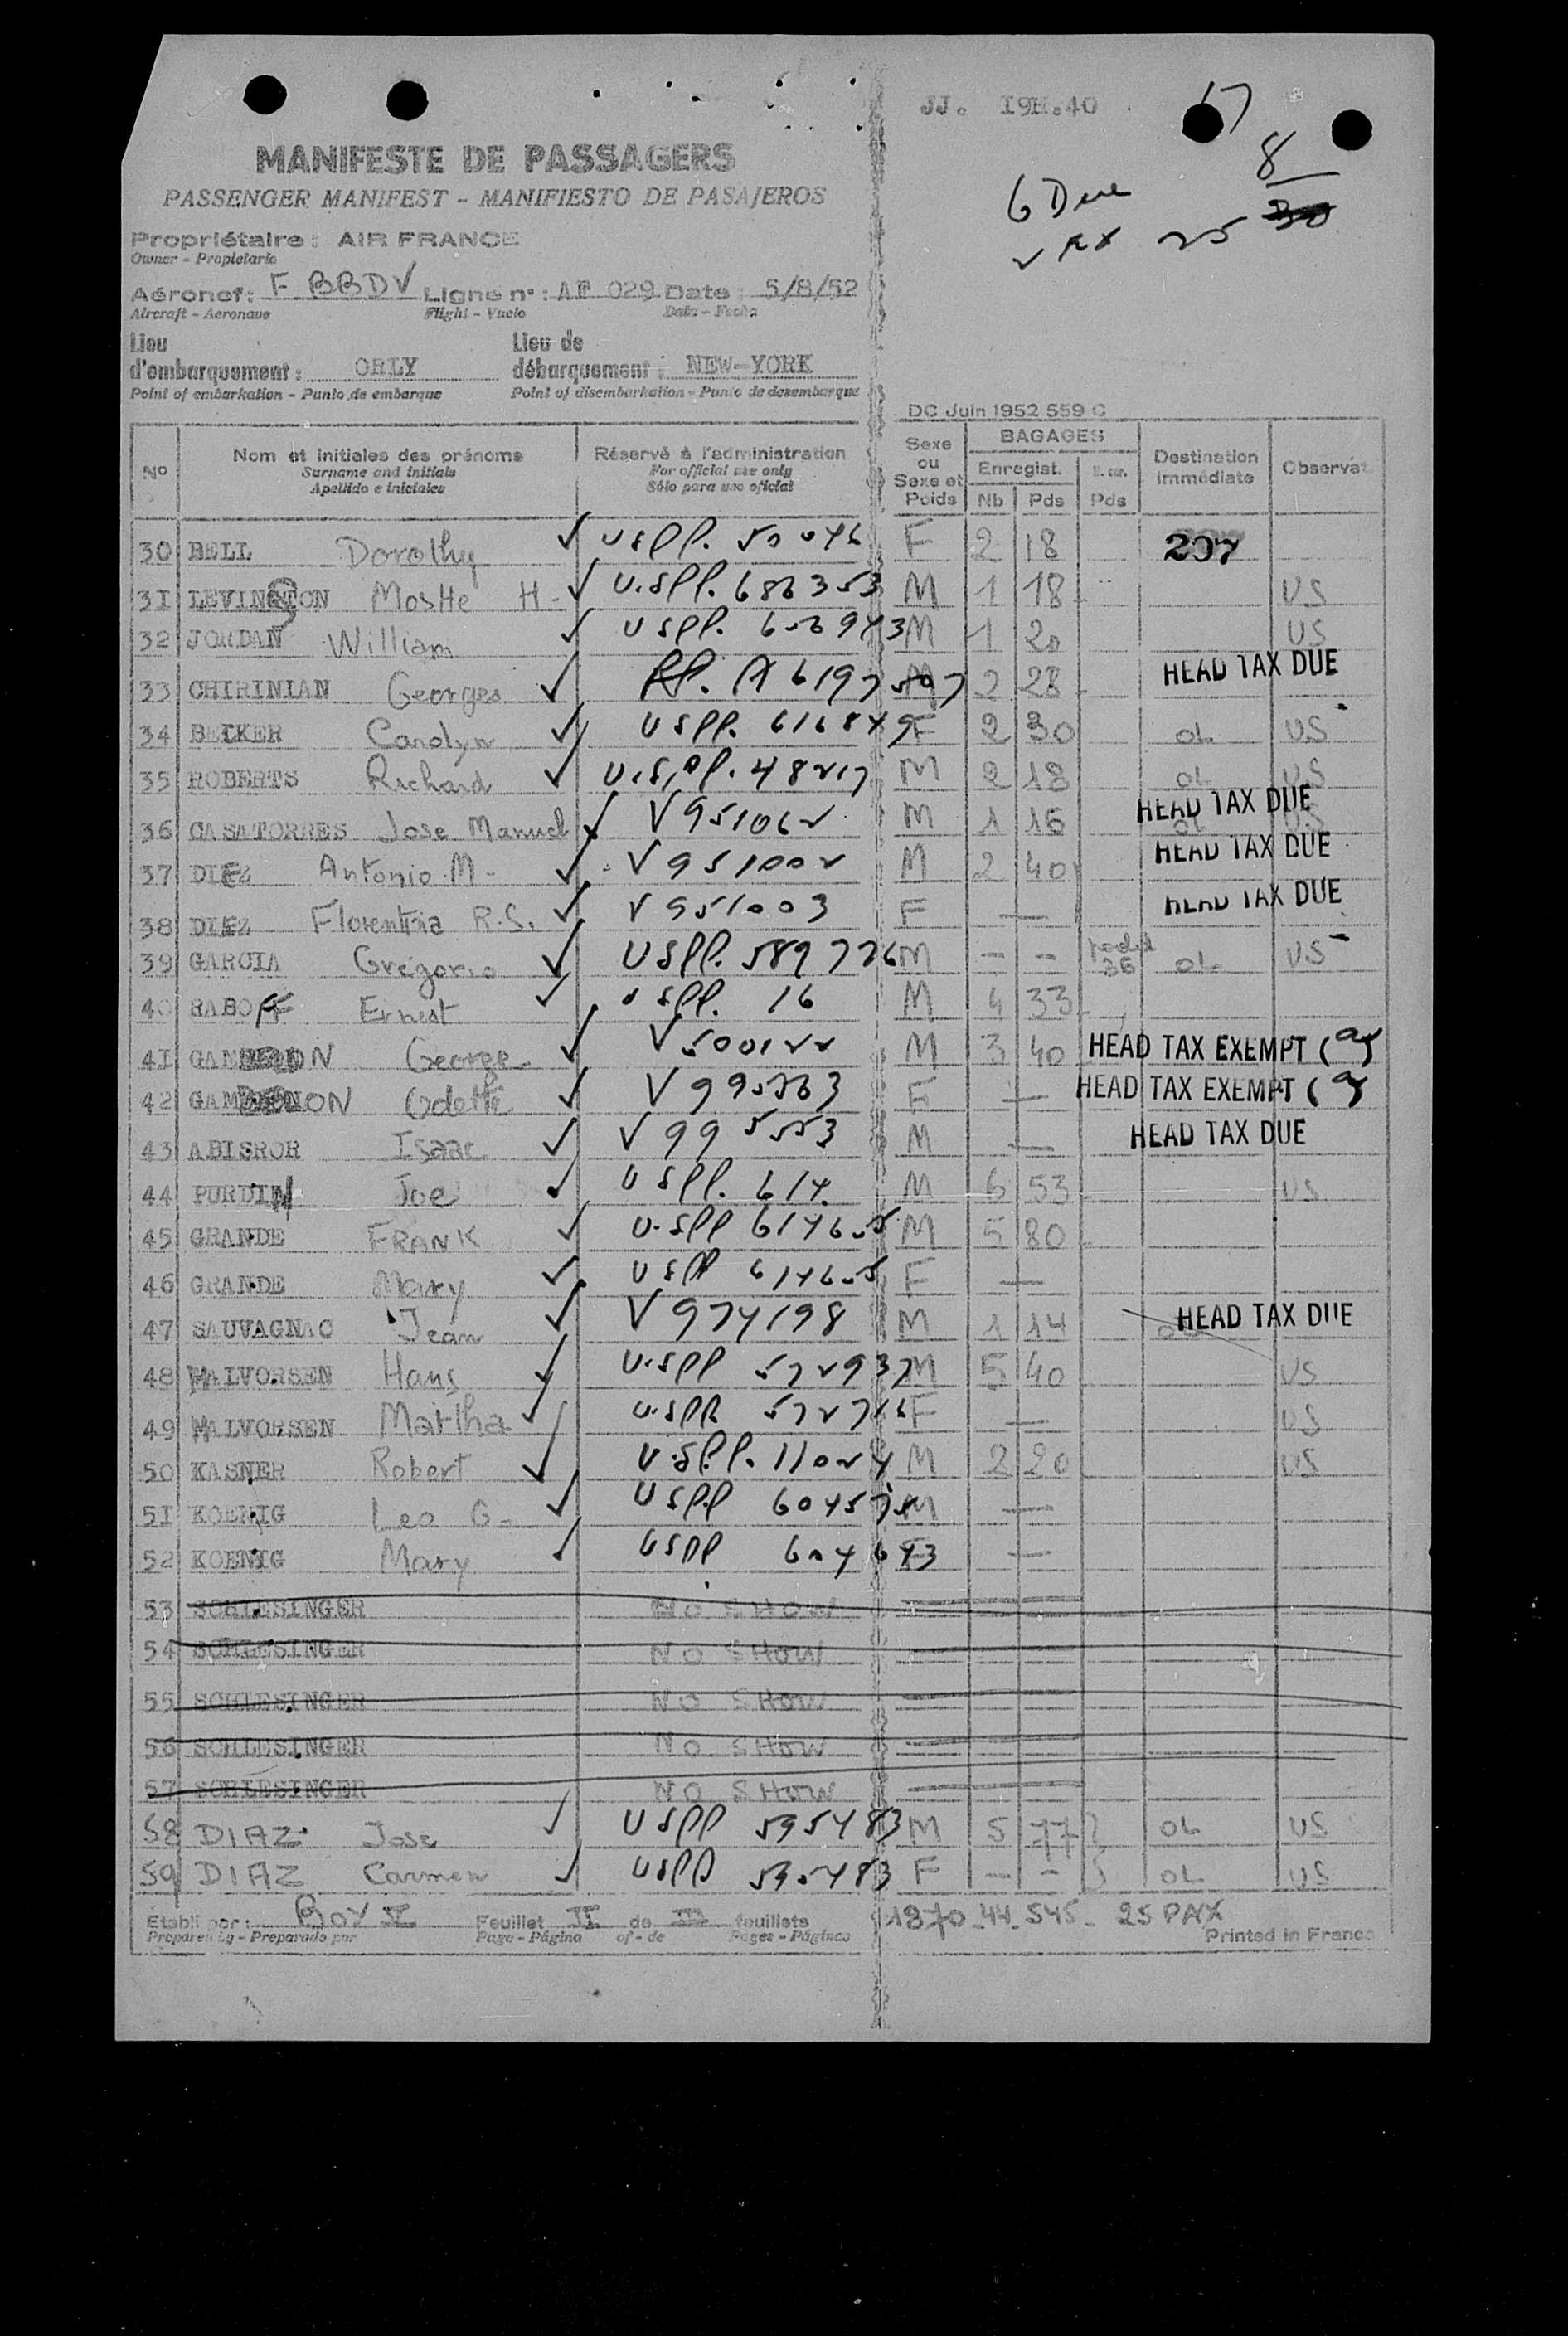 JJ. I9H.40 17
8
6 Due
2 ex 25 30
MANIFESTE DE PASSAGERS
PASSENGER MANIFEST - MANIFIESTO DE PASAJEROS
Propriétaire : AIR FRANCE
Owner - Propietario
Aéronef : F BBDV Ligne n° : AF 029 Date : 5/8/52
Aircraft - Aeronave Flight - Vuelo Date - Fecha
Lieu Lieu de
d'embarquement : ORLY débarquement : NEW-YORK
Point of embarkation - Punto de embarque Point of disembarkation - Punto de desembarque
DC Juin 1952 559 C
N° Nom et initiales des prénoms Réservé à l'administration Sexe ou Sexe et Poids BAGAGES Destination immédiate Observat.
Surname and initials For official use only Enregist.
Apellido e iniciales Sólo para uso oficial Nb Pds Pds
30 BELL Dorothy ✓ USPP. 50046 F 2 18 207
31 LEVINGSTON H. ✓ U.SPP. 686353 M 1 18 US
32 JORDAN William ✓ USPP. 606943 M 1 20 US
33 CHIRINIAN Georges ✓ A6197507 M 2 28 HEAD TAX DUE
34 BECKER Carolyn ✓ USPP. 616849 F 2 30 OL US
35 ROBERTS Richard ✓ U.S.PP. 48217 M 2 18 OL US
36 CASATORRES Jose Manuel ✓ V951062 M 1 16 OL US HEAD TAX DUE
37 DIEZ Antonio M- ✓ V951002 M 2 40 HEAD TAX DUE
38 DIEZ Florentina R.S. ✓ V951003 F — HEAD TAX DUE
39 GARCIA Gregorio ✓ USPP. 589726 M - - OL US
40 RABOFF Ernest ✓ USPP. 16 M 4 33
41 George ✓ V500122 M 3 40 HEAD TAX EXEMPT (
42 Odette ✓ F — HEAD TAX EXEMPT (
43 ABISROR Isaac ✓ V995553 M — HEAD TAX DUE
44 PURDIN Joe ✓ USPP. 614. M 6 53 US
45 GRANDE FRANK ✓ U.SPP 614605 M 5 80
46 GRANDE Mary ✓ USPP 614605 F —
47 SAUVAGNAC Jean ✓ V974198 M 1 14 HEAD TAX DUE
48 HALVORSEN Hans ✓ U.SPP 572937 M 5 40 US
49 HALVORSEN Martha ✓ U.SPP F — US
50 KASNER Robert ✓ U.S.P.P. 11024 M 2 20 US
51 KOENIG Leo G- ✓ USPP M —
52 KOENIG Mary ✓ USPP 604643 F —
53 SCHLESINGER NO SHOW
54 SCHLESINGER NO SHOW
55 SCHLESINGER NO SHOW
56 SCHLESINGER NO SHOW
57 SCHLESINGER NO SHOW
58 DIAZ Jose ✓ USPP 595483 M 5 77 OL US
59 DIAZ Carmen ✓ USPP 595483 F - - OL US
Établi par : Feuillet II de III feuillets 1870 44 545 25 PAX
Prepared by - Preparado por Page - Página of - de Pages - Páginas Printed in France